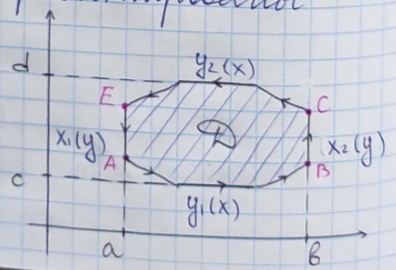 y₂(x)
d
E
C
x₁(y)
D
x₂(y)
A
B
c
y₁(x)
a
b